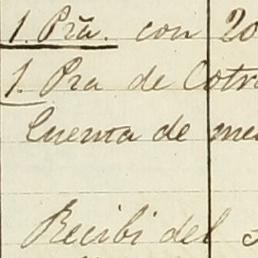 1. Pza. con 20
1. Pza de Cotr
Cuenta de me
Recibi del